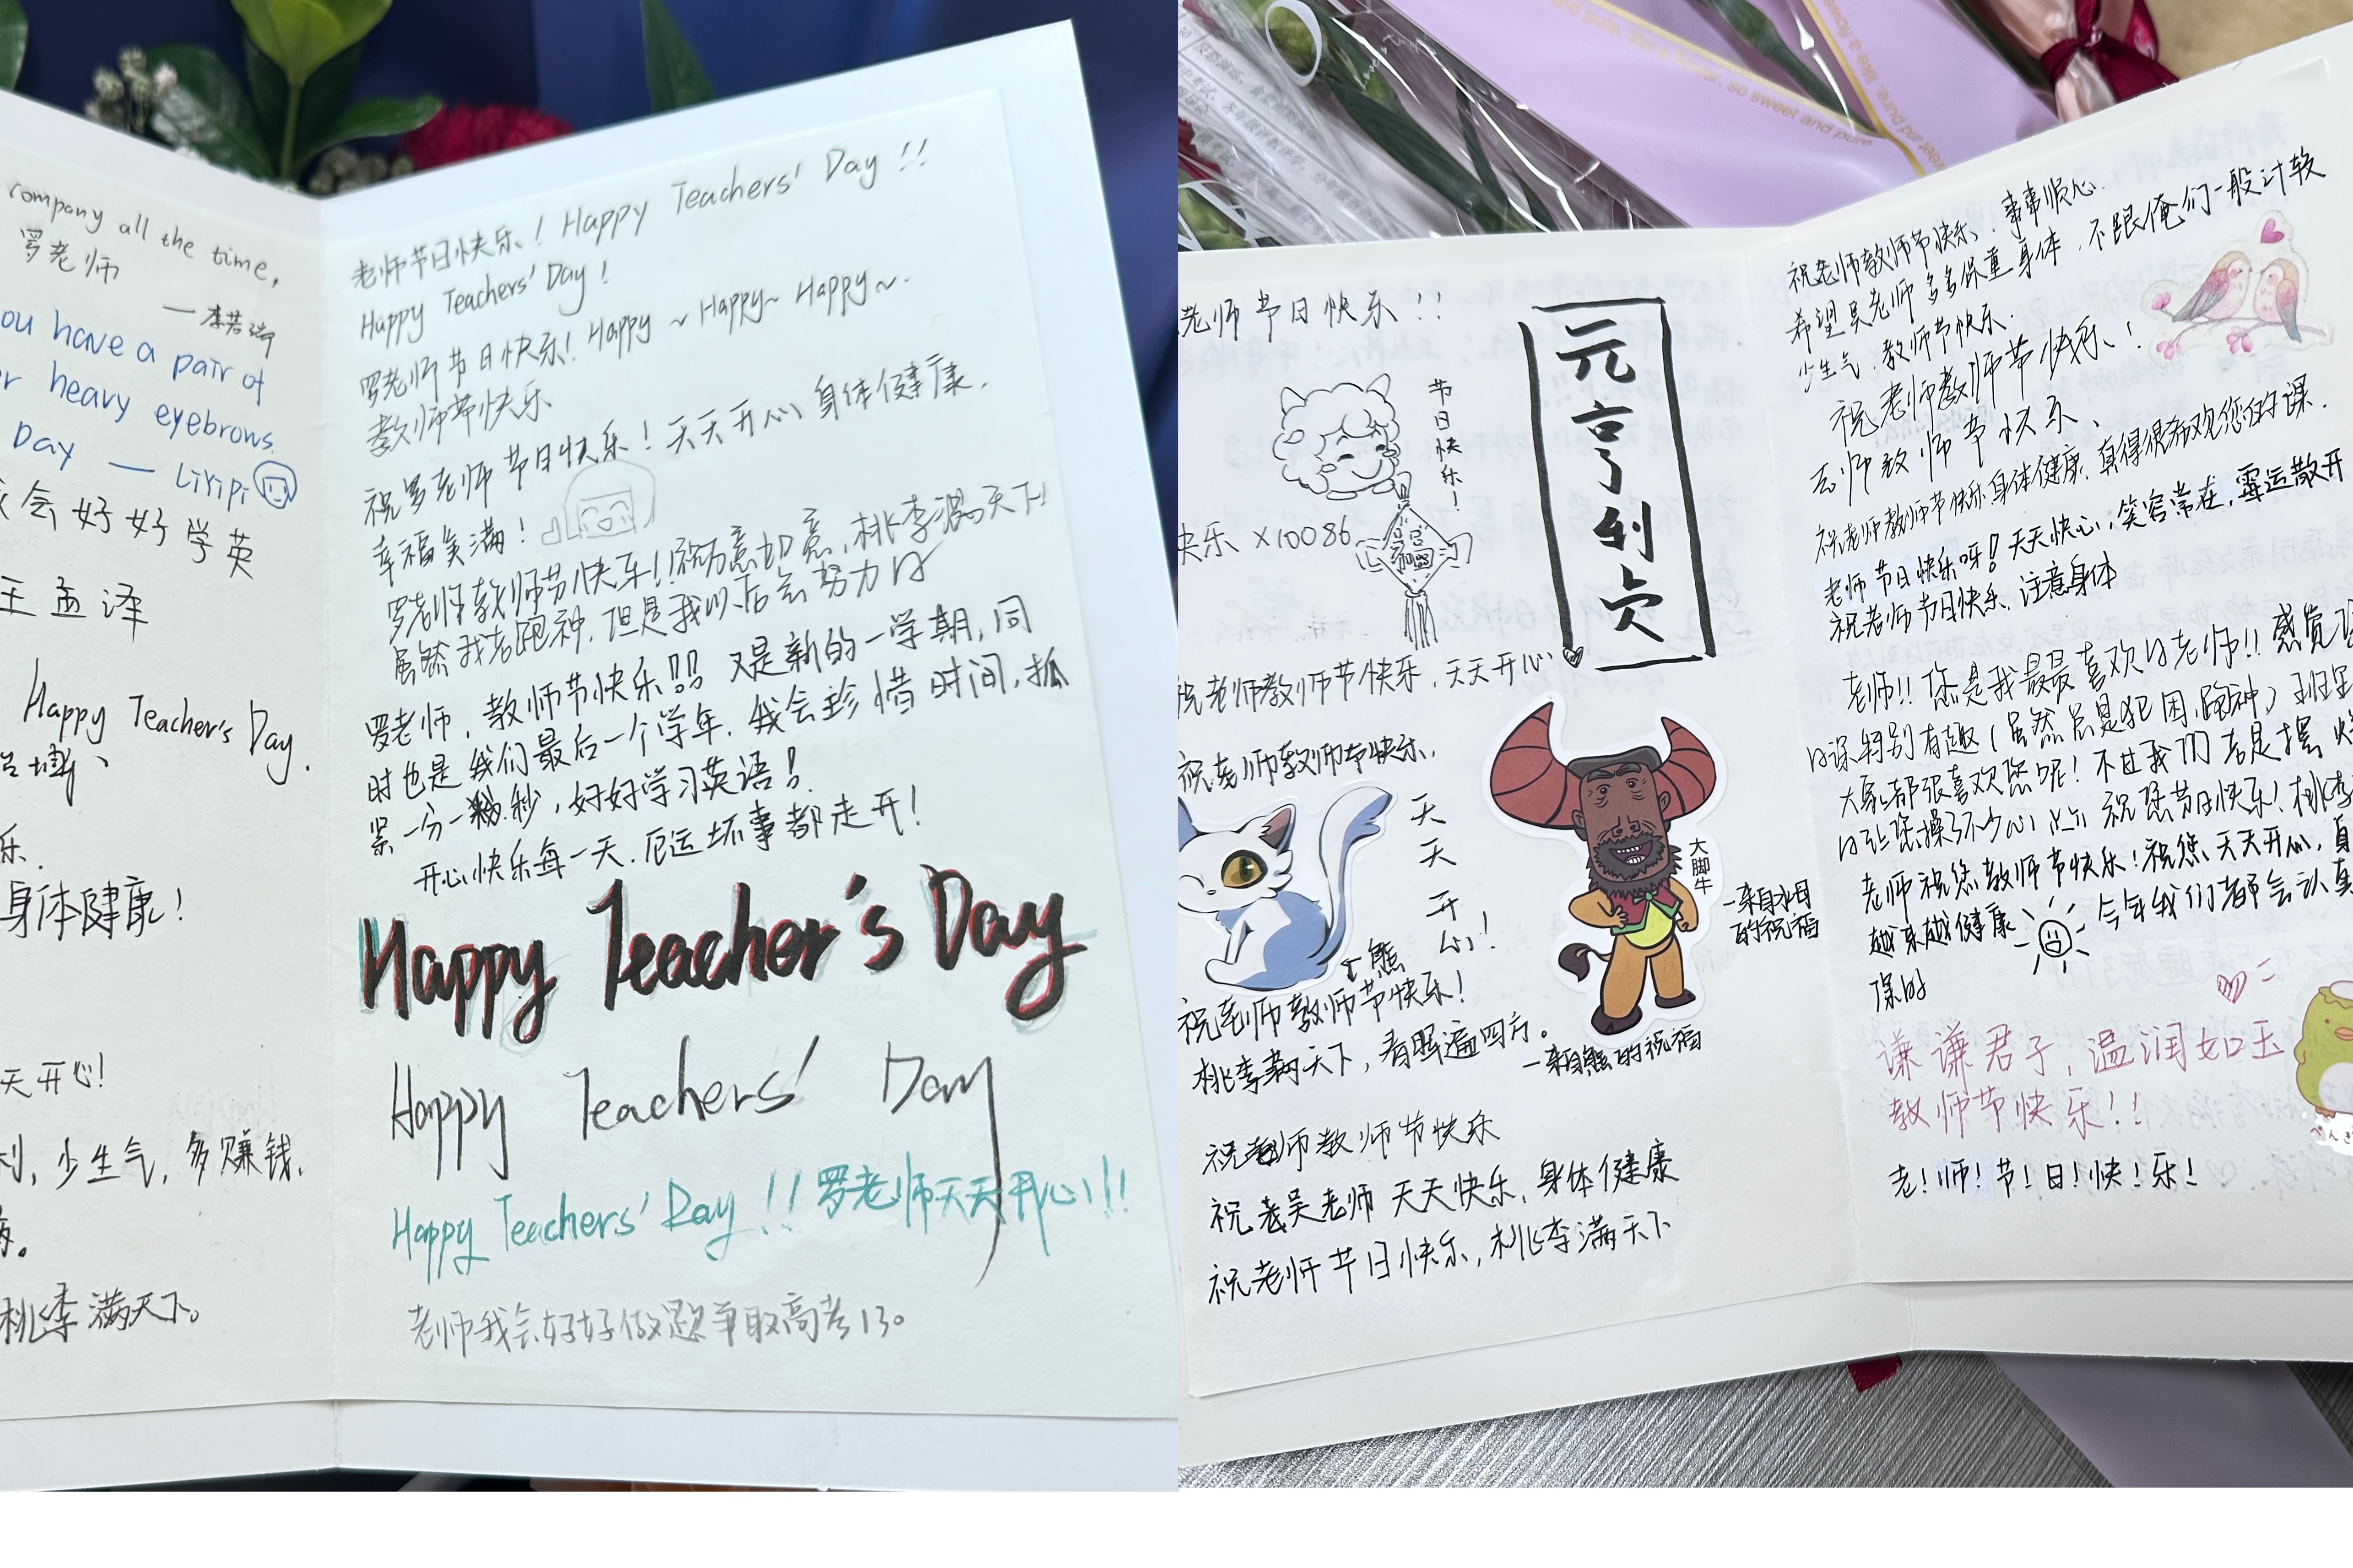 company all the time,
罗老师
ou have a pair of
r heavy eyebrows.
Day — LiYiPi
会好好学英
王孟泽
Happy Teacher's Day.
乐.
身体健康!
天开心!
利, 少生气, 多赚钱.
桃李满天下。
老师节日快乐! Happy Teachers' Day !!
Happy Teachers' Day !
罗老师节日快乐! Happy ~ Happy~ Happy~.
教师节快乐
祝罗老师节日快乐! 天天开心 身体健康.
幸福美满!
罗老师教师节快乐!! 祝万意如意, 桃李满天下!
虽然我老跑神. 但是我以后会努力
罗老师, 教师节快乐!!! 又是新的一学期, 同
时也是我们最后一个学年. 我会珍惜时间, 抓
紧一分一秒, 好好学习英语!
开心快乐每一天. 厄运坏事都走开!
Happy Teacher's Day
Happy Teachers' Day
Happy Teachers' Day !! 罗老师天天开心!!!
老师我会好好做题争取高考130
老师节日快乐!!
节日快乐!
福
快乐 ×10086
元亨利贞
祝老师教师节快乐, 天天开心
祝老师教师节快乐.
天天开心!
熊
大脚牛
—来自水母
的祝福
祝老师教师节快乐!
桃李满天下, 春晖遍四方。
—来自熊的祝福
祝老师教师节快乐
祝吴老师 天天快乐, 身体健康
祝老师节日快乐, 桃李满天下
祝老师教师节快乐, 事事顺心.
希望吴老师多多保重身体, 不跟俺们一般计较
少生气. 教师节快乐.
祝老师教师节快乐!
老师教师节快乐.
祝老师教师节快乐 身体健康, 真得很喜欢您的课.
老师节日快乐呀! 天天快心, 笑容常在, 霉运散开
祝老师节日快乐, 注意身体
老师!! 您是我最最喜欢的老师!! 感觉
的课特别有趣 (虽然总是犯困,跑神) 班里
大家都很喜欢您呢! 不过我们老是摆烂
的让您操了不少心 祝您节日快乐! 桃李
老师祝您教师节快乐! 祝您天天开心, 身
越来越健康 今年我们都会认真
谦谦君子, 温润如玉
教师节快乐!!
老! 师! 节! 日! 快! 乐!